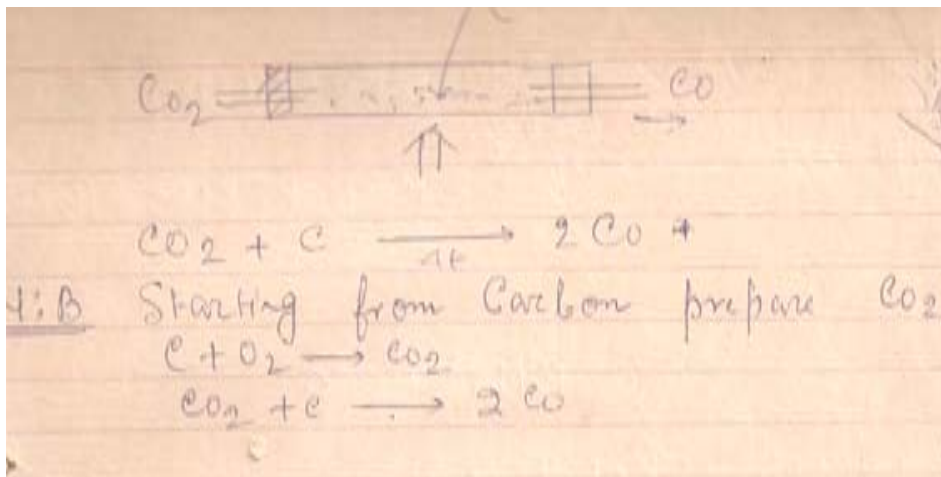 CO2 CO
CO2 + C → 2 CO
Δt
N:B Starting from Carbon prepare CO2
C + O2 → CO2
CO2 + C → 2 CO